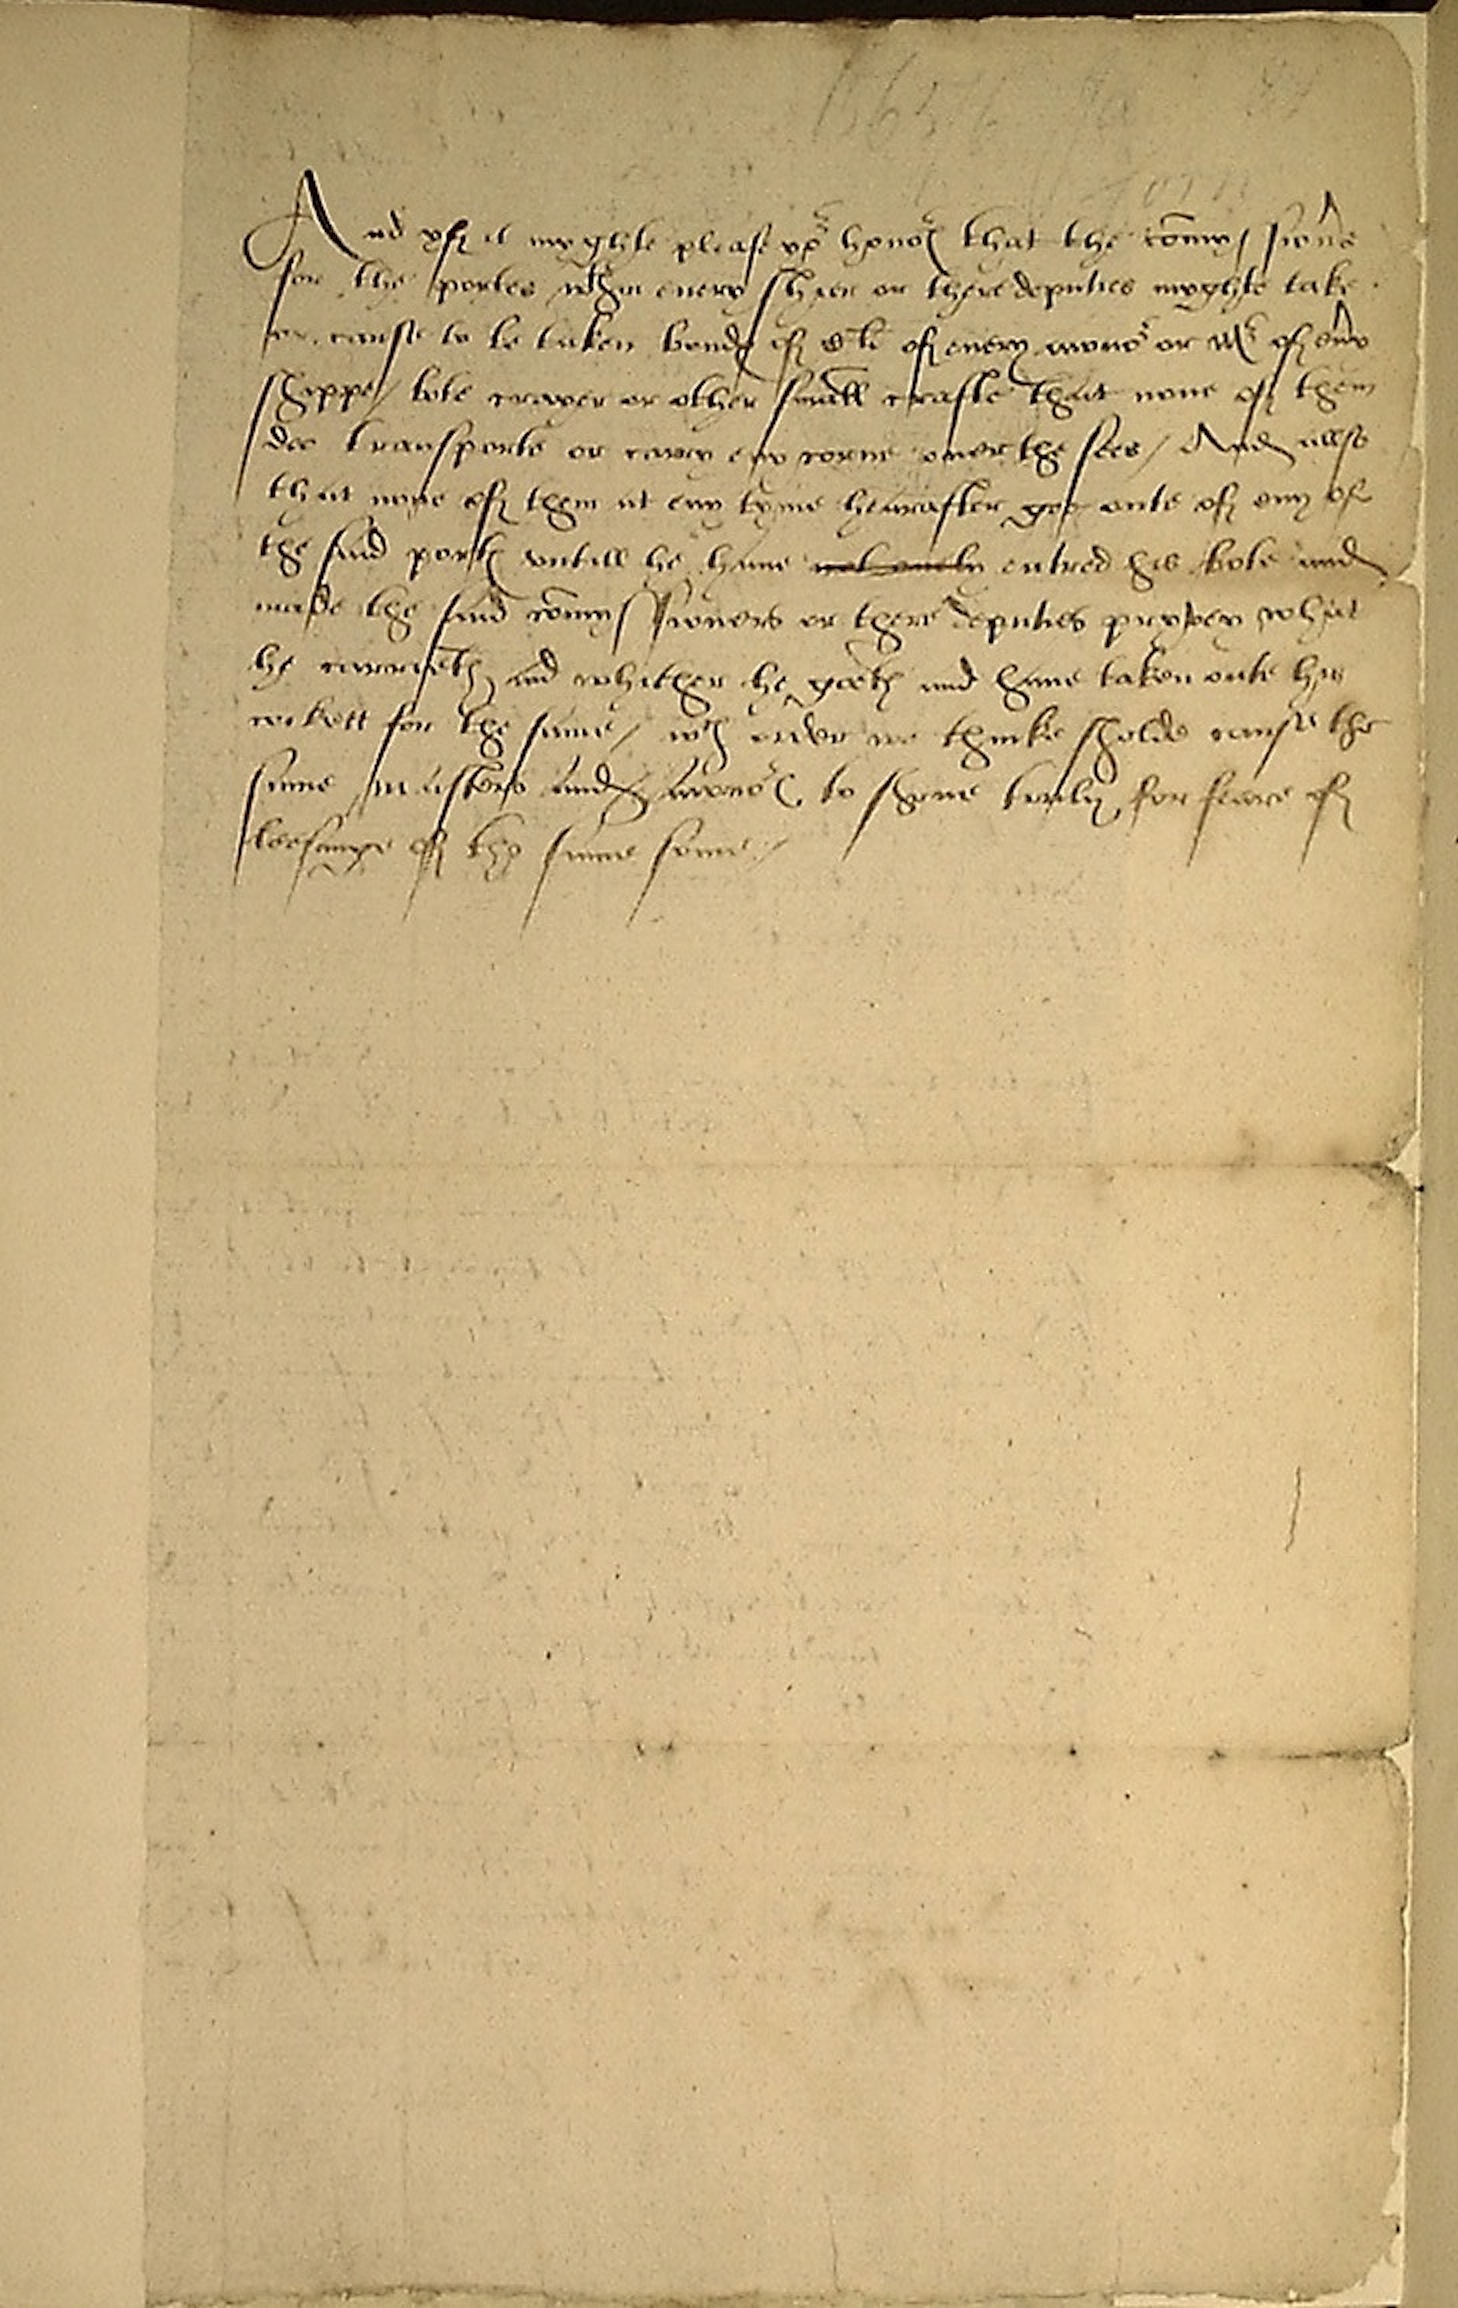 And yf it myghte please yor honors that the comyssioners
for the portes wthin euery shyer or there deputies myghte take
or cause to be taken bonde of Cli of euery owner or Mr of eny
shippe / bote crayer or other small crafte that none of them
doe transporte or cary eny corne ouer the sees / And allso
that none of them at eny tyme hearafter goe oute of eny of
the said portes vntill he haue entred his bote and
made the said comyssioners or there deputies pryvey what
he carrieth and whither he goeth and haue taken oute his
cokett for the same / wch order we thinke sholde cause the
same masters and owners to shewe trewly for feare of
leesinge of the same some /